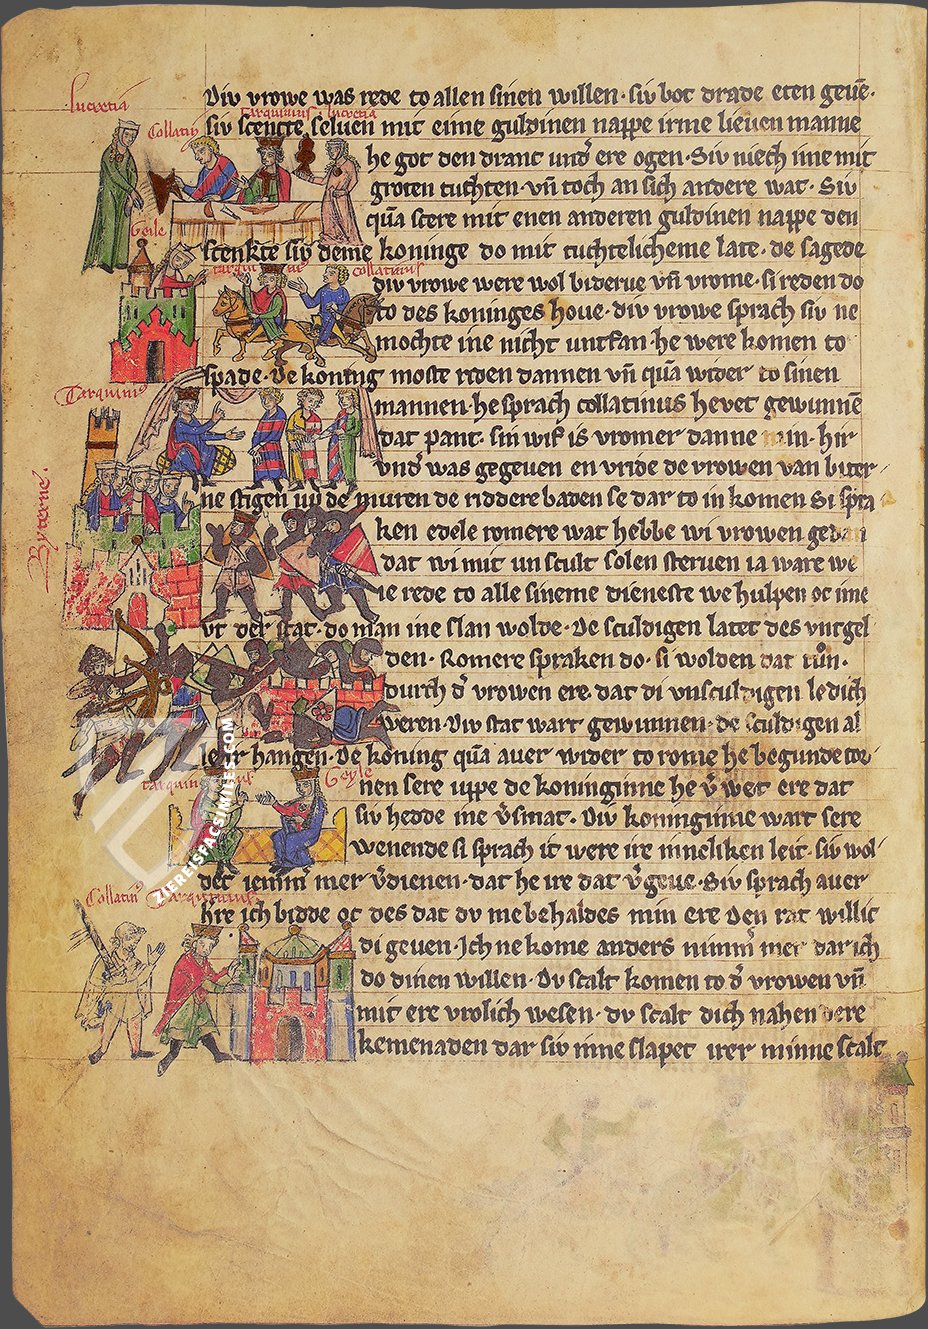 lucretia
Div vrowe was rede to allen sinen willen · siv bot drade eten geuē·
Collatin⁹
tarquinius · lucretia
siv scencte seluen mit eime guldinen nappe irme lieuen manne
he got den dranc und ere ogen · Siv niech ime mit
groten tuchten · vn̄ toch an sich andere wat · Siv
quā scere mit enen anderen guldinen nappe den
Geile
scenkte siv deme koninge do mit tuchtelicheme late · de sagede
tarquinius
collatinus
div vrowe were wol biderue vn̄ vrome · si reden do
to des koninges houe · div vrowe sprach siv ne
mochte ine nicht untfan · he were komen to
spade · De koning moste riden dannen vn̄ quā wider to sinen
Tarquini⁹
mannen · he sprach collatinus hevet gewunnē
dat pant · sin wif is vromer danne min · hir
vnd was gegeuen en vride de vrowen van biter
ne stigen up de muren de riddere baden se dar to in komen Si spra
Byterne ·
ken edele romere wat hebbe wi vrowen gedan
dat wi mit unscult solen steruen ia ware we
ie rede to alle sineme dieneste we hulpen oc ime
vt der stat · do man ine slan wolde · De sculdigen latet des untgel
den · Romere spraken do · si wolden dat tuͦn ·
durch d' vrowen ere · dat di vnsculdigen ledich
weren · Div stat wart gewunnen · de sculdigen al
le er hangen · De koning quā auer wider to rome he begunde tor
tarquinius
Geyle
nen sere uppe de koninginne he v̄ wet ere dat
siv hedde ine v̄smat · Div koninginne wart sere
wenende si sprach it were ire inneliken leit · siv wol
det iemm̄ mer v̄dienen · dat he ire dat v̄geue · Siv sprach auer
Collatin⁹
Tarquinius
hre ich bidde oc des dat du me behaldes min ere Den rat willic
di geuen · Ich ne kome anders nimm̄ mer dar ich
do dinen willen · Du scalt komen to d' vrowen vn̄
mit ere vrolich wesen · du scalt dich nahen dere
kemenaden dar siv inne slapet irer minne scalt
ZIEREISFACSIMILES.COM